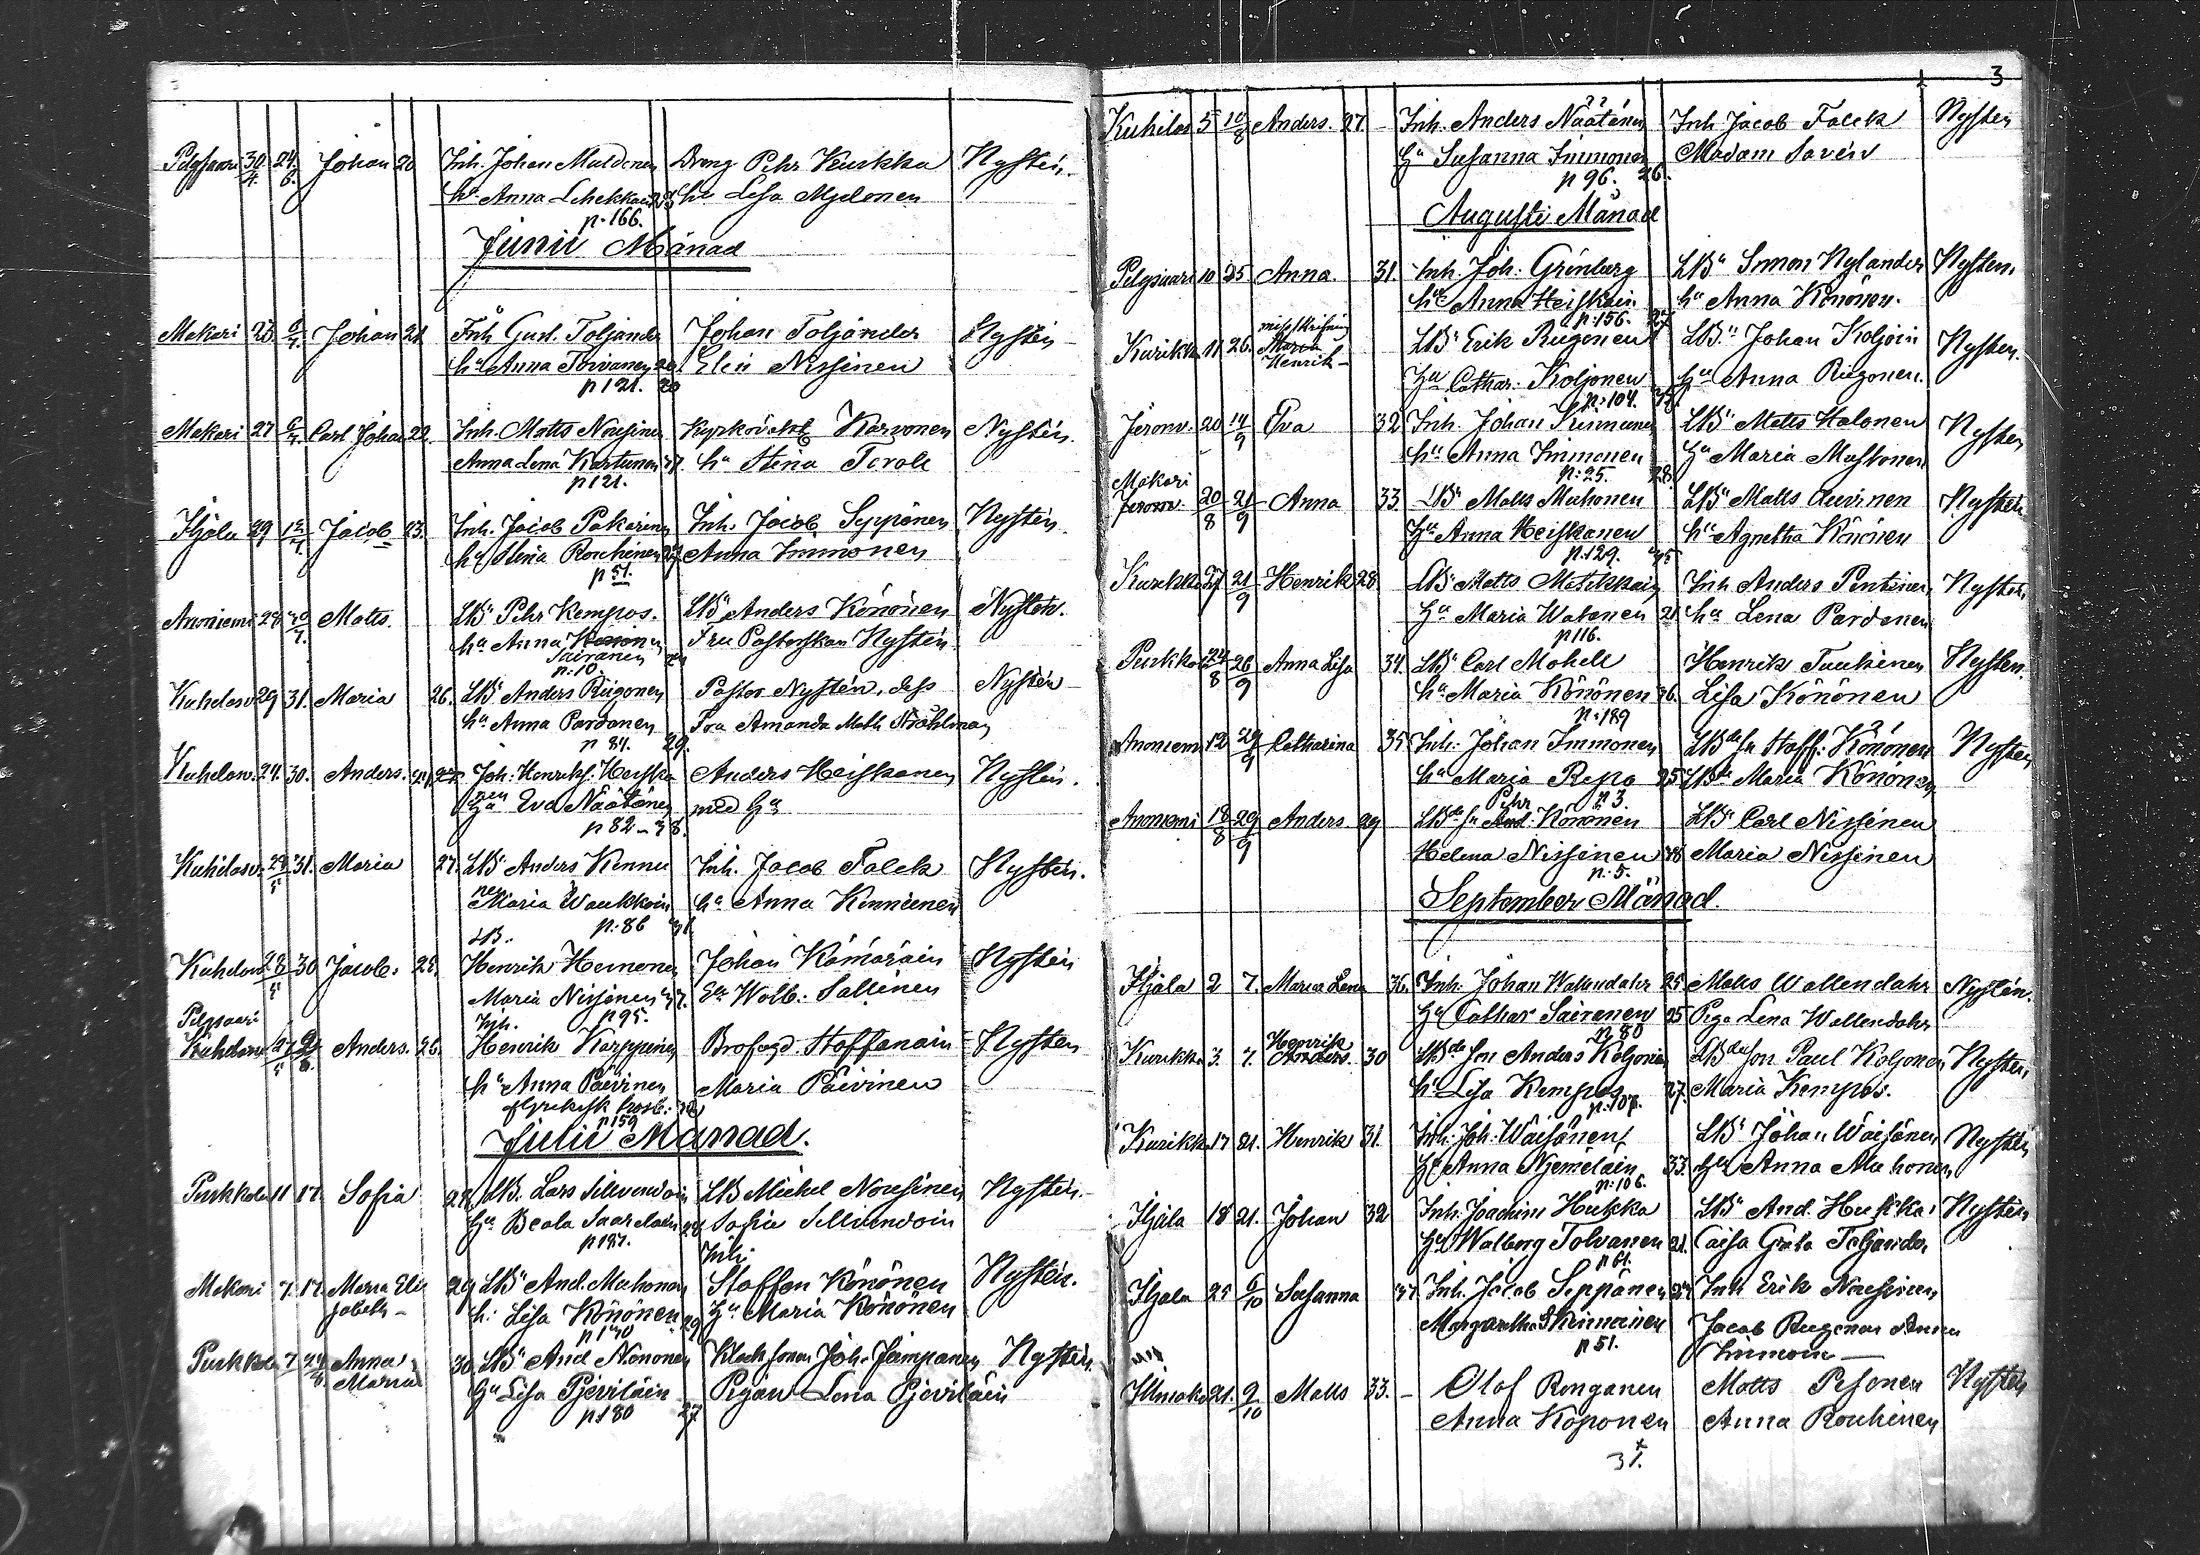 Pilgsaari 30/4. 24/6. Johan 20 Inh. Johan Muldonen Dreng Pehr Kurkka Nystén.
ha Anna Lehekkain 25 ha Lisa Mydonen
p. 166.
Junii Månad
Makari 23 6/7. Johan 21 Inh Gust. Toljander Johan Toljander Nystén
ha Anna Toivanen 20 Elin Nissinen
p 121. 20
Makari 27 6/7. Carl Johan 22. Inh. Matts Nousinen Kyrkovakt Karvonen Nystén.
Anna Lena Kortunen 27. ha Stina Torole
p 121.
Ihjala 29 12/7. Jacob 23. Inh. Jacob Pakarinen Inh. Jacob Seppänen Nystén.
ha Stina Rouhinen 27. Anna Immonen
p 51.
Anoniemi 28 20/7. Matts. LB Pehr Kempas. LBn Anders Könönen Nystén.
ha Anna Sairanen Fru Pastorskan Nystén
p. 10.
Kuhelasv. 29 31. Maria 26. LBn Anders Riegonen Pastor Nystén, dess Nystén
ha Anna Pardanen Fru Amanda Math. Ståhlman
p 84. 29.
Kuhelasv. 24. 30. Anders. 24. Joh. Henriks. Heiska Anders Heiskanen Nystén.
nen
ha Eva Näätänen med ha
p 82 - 38.
Kuhelasv. 29/5 31. Maria 27. LBn Anders Kinnu Inh. Jacob Falck Nystén.
nen
Maria Waukkoin ha Anna Kinnunen
p. 86 31
LB.
Kuhelasv. 28/5 30 Jacob. 25. Henrik Heinonen Johan Kämäräin Nystén
Maria Nissinen 37. ha Wolb. Sallinen
Inh. p 95.
Pilgsaari
Kuhelasv. Anders. 26. Henrik Karppinen Brofogd. Staffanain Nystén
ha Anna Päivinen Maria Päivinen
af Grekisk
p 159
Julii Månad.
Purkkola 11 17. Sofia 28. LB. Lars Sillvendoin LB Michel Nousinen Nystén.
ha Beata Saarelain 28 Sofia Sillvendoin
p 187. Inh
Makari 7. 17. Maria Eli 29 LBn And. Muhonen Staffan Könönen Nystén.
jabeth - h. Lisa Könönen ha Maria Könönen
p 130 29
Purkkola 7. 24/8. Anna 30. LBn And Nononen Klock sonen Joh. Jämpanen Nystén
Maria ha Lisa Pieviläin Pigan Lena Pieviläin
p. 180 27
3
Kuhelas 5 10/8 Anders. 27 Inh. Anders Näätänen Inh. Jacob Falck Nystén
ha Susanna Immonen Madam Savén
p 96. 26.
Augusti Månad
Pilgsaari 10 25. Anna. 31. Inh. Joh. Grönberg LBn Simon Nylander Nystén.
ha Anna Heiskain ha Anna Könönen.
p. 156. 27
Kurikka 11 26. Henrik LBn Erik Riegonen LBn Johan Koljoin Nystén.
ha Cathar. Koljonen ha Anna Riegonen.
p. 104. 37
Jeronv. 20 14/9 Eva 32 Inh. Johan Kinnunen LBn Matts Halonen Nystén
ha Anna Immonen ha Maria Mustonen
p. 25. 28
Makari
Jeronv. 20/8 21/9 Anna 33. LBn Matts Muhonen LBn Matts Auvinen Nystén
ha Anna Heiskanen ha Agnetha Könönen
p. 129. 45
Kurikka 27 21/9 Henrik 28 LBn Matts Matikkain Inh Anders Pentinen Nystén.
ha Maria Watanen 21 ha Lena Pardanen
p 116.
Purkkola 24/8 26/9 Anna Lisa 34. LBn Carl Mohell Henrik Tuukinen Nystén.
ha Maria Könönen 36. Lisa Könönen
p. 189
Anoniem 12 29/9 Catharina 35 Inh. Johan Immonen LBde sn Staff. Könönen Nystén
ha Maria Repo 25 LBda Maria Könönen
Pehr p 3.
Anoniemi 18/8 29/9 Anders 29 LBde sn And. Könönen LBn Carl Nissinen
Helena Nissinen 38 Maria Nissinen
p. 5.
September Månad.
Ihjala 2 7. Maria Lena 36. Inh. Johan Wallendahr 25. Matts Wallendahr Nystén.
ha Cathar Sairanen 25 Piga Lena Wallendahr
Henrik p 80
Kurikka 3. 7. Anders. 30 LBde son Anders Koljonen LBde son Paul Koljonen Nystén
ha Lisa Kempas 27. Maria Kempas.
p. 107.
Kurikka 17 21. Henrik 31. Inh. Joh. Wäisänen LBn Johan Wäisänen Nystén
ha Anna Njemeläin 33. ha Anna Muhonen
p. 106.
Ihjala 18 21. Johan 32 Inh. Joachim Hukka LBn And. Hukka Nystén
ha Walborg Tolvanen 21. Caisa Greta Toljander
p 61.
Ihjala 25 6/10 Susanna 37 Inh. Jacob Seppänen 27 Inh Erik Nousinen
Margaretha Kinnunen Jacob Riegonen Anna
p 51. Immoin -
Ihmaka 21. 9/10 Matts 33. - Olof Ronganen Matts Pesonen Nystén
Anna Koponen Anna Rouhinen
31.